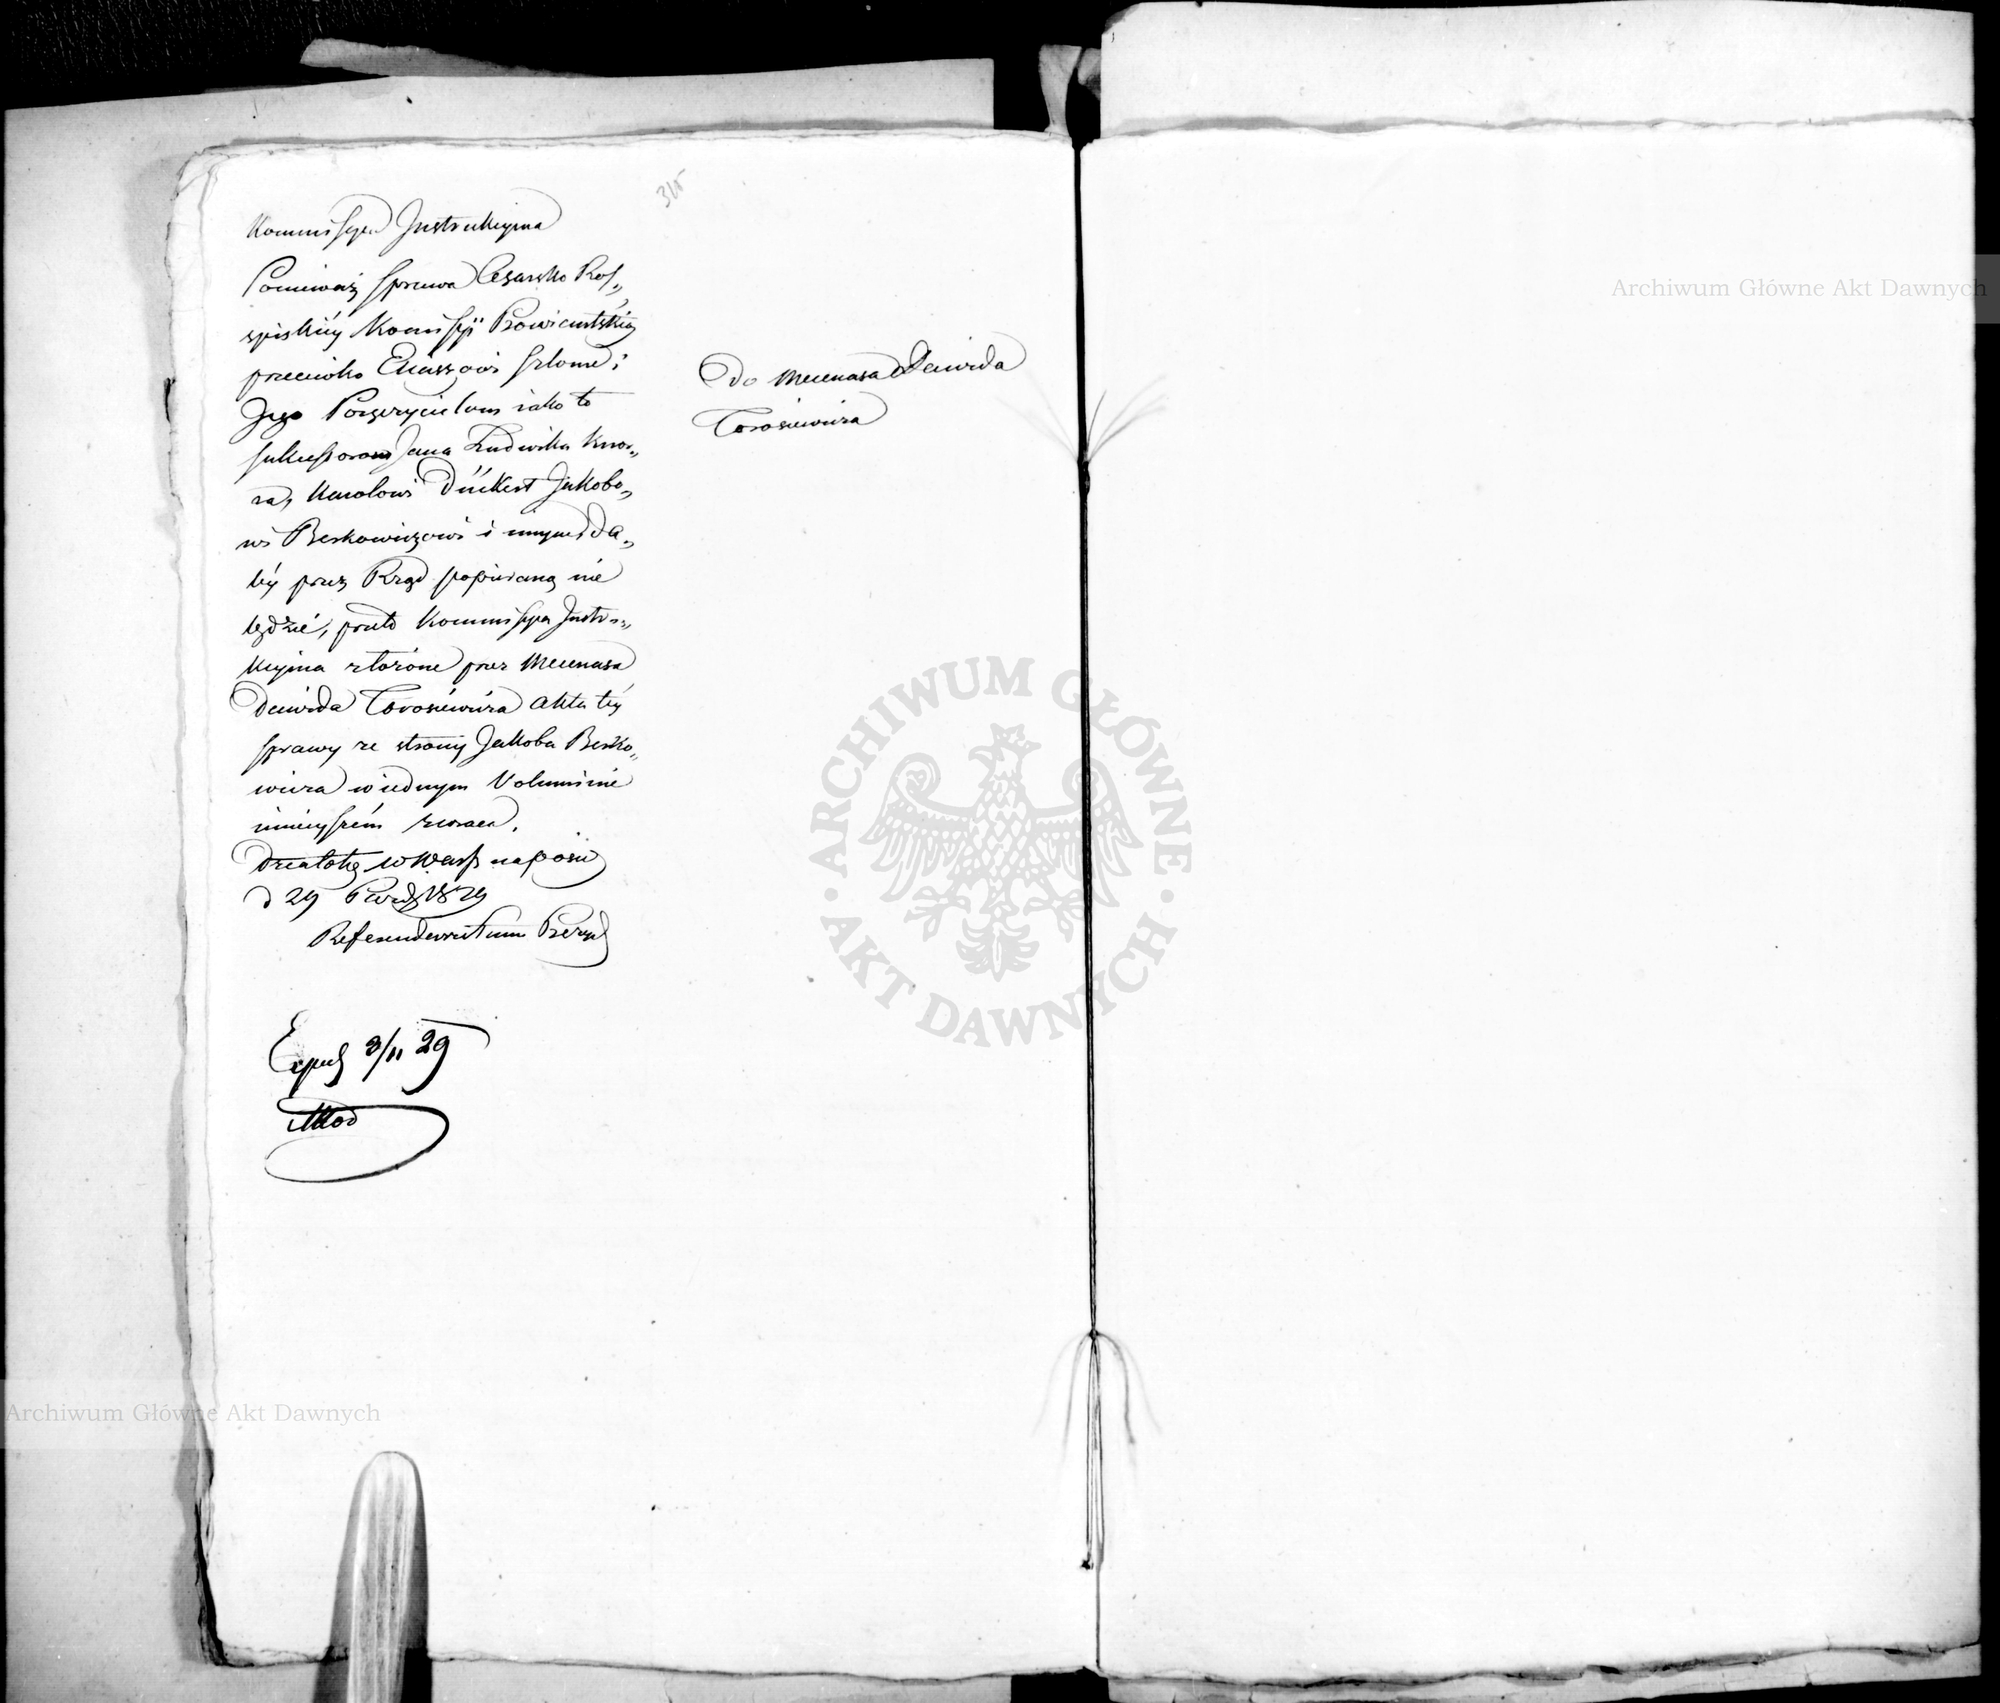 315
Kommissya Instrukcyina
Ponieważ sprawa Cesarsko Ros„
syiskiéy Kommissyi Prowiantskiéy
przeciwko Eliaszowi Szlomie i
Jego Poręczycielom iako to
sukcessorom Jana Ludwika Knor„
ra, Karolowi Dückert Jakobo„
wi Berkowiczowi i innym da„
léy przez Rząd popieraną nie
będzie, przeto Kommissya Instru„
kcyina złożone przez Mecenasa
Dawida Torosiewicza Akta téy
sprawy ze strony Jakoba Berko„
wicza w iednym Voluminie
ninieyszém zwraca.
Działo się w Warsz na posie
d 29 Paźdz 1829
Referendarz Stanu Prezyd
Exped 3/11 29
Do Mecenasa Dawida
Torosiewicza
Archiwum Główne Akt Dawnych
ARCHIWUM GŁÓWNE · AKT DAWNYCH ·
Archiwum Główne Akt Dawnych